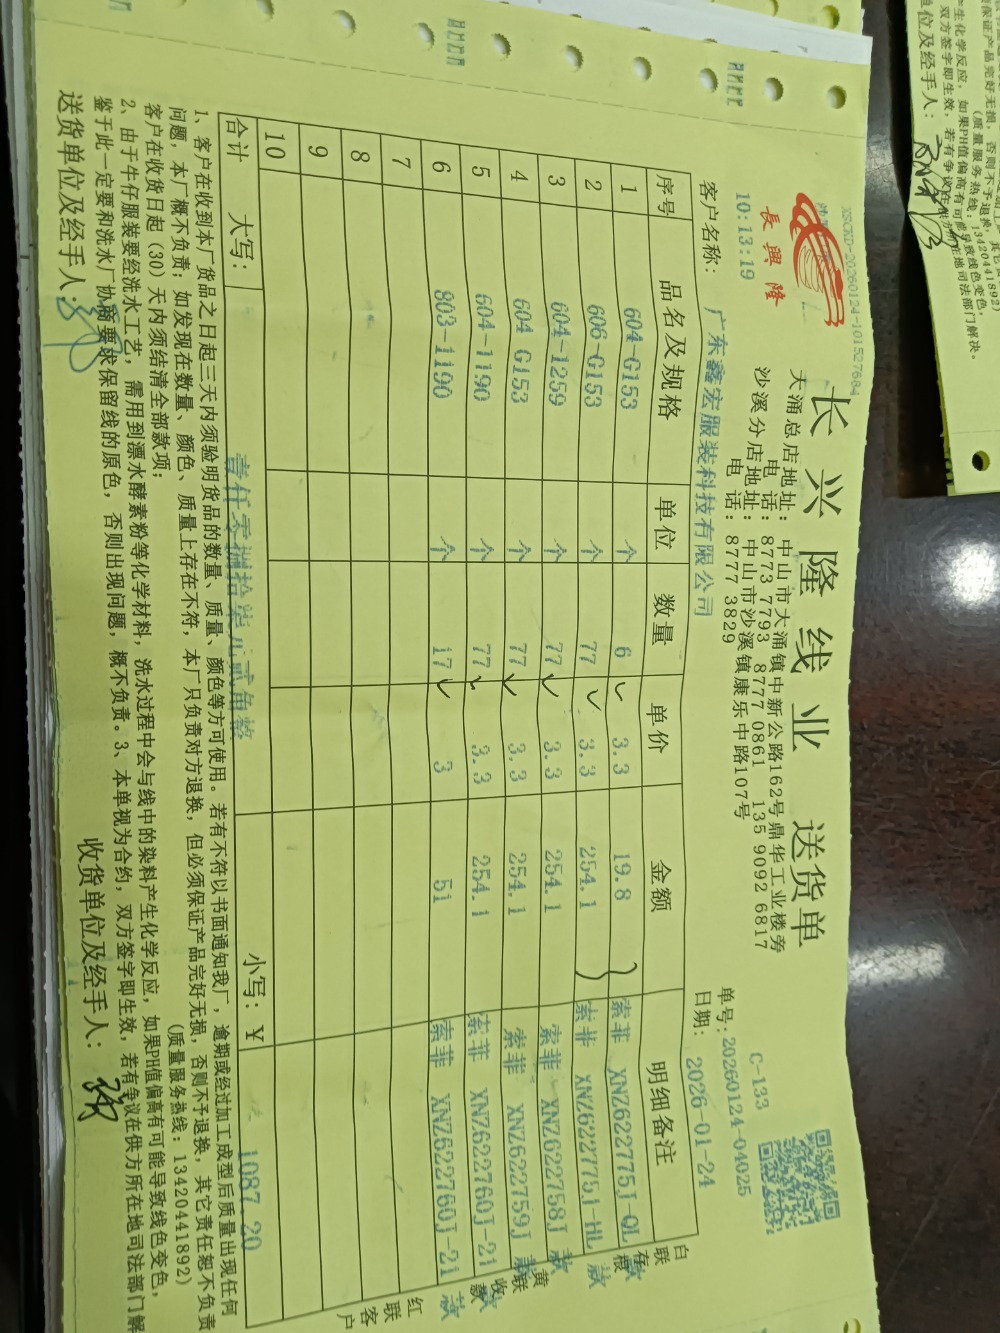 XSCKD-20260124-101527684
長興隆
长兴隆线业 送货单
大涌总店地址: 中山市大涌镇中新公路162号鼎华工业楼旁
电 话: 8773 7793 8777 0861 135 9092 6817
沙溪分店地址: 中山市沙溪镇康乐中路107号
电 话: 8777 3829
C-133
单号: 20260124-04025
日期: 2026-01-24
10:13:19
客户名称: 广东鑫宏服装科技有限公司
序号 品名及规格 单位 数量 单价 金额 明细备注
1 604-G153 个 6 3.3 19.8 索菲 XNZ622775J-QL款
2 606-G153 个 77 3.3 254.1 索菲 XNZ622775J-HL款
3 604-1259 个 77 3.3 254.1 索菲 XNZ622758J款
4 604-G153 个 77 3.3 254.1 索菲 XNZ622759J款
5 604-1190 个 77 3.3 254.1 索菲 XNZ622760J-21款
6 803-1190 个 17 3 51 索菲 XNZ622760J-21款
7
8
9
10
合计 大写: 壹仟零捌拾柒元贰角整 小写: ¥ 1087.20
白联存根
黄联收款
红联客户
1、客户在收到本厂货品之日起三天内须验明货品的数量、质量、颜色等方可使用。若有不符以书面通知我厂,逾期或经过加工成型后质量出现任何
问题,本厂概不负责;如发现在数量、颜色、质量上存在不符,本厂只负责对方退换,但必须保证产品完好无损,否则不予退换,其它责任恕不负责
客户在收货日起(30)天内须结清全部款项; (质量服务热线:13420441892)
2、由于牛仔服装要经洗水工艺,需用到漂水酵素粉等化学材料,洗水过程中会与线中的染料产生化学反应,如果PH值偏高有可能导致线色变色,
鉴于此一定要和洗水厂协商要求保留线的原色,否则出现问题,概不负责。3、本单视为合约,双方签字即生效,若有争议在供方所在地司法部门解
送货单位及经手人: 收货单位及经手人:
保证产品完好无损,否则不予退换,其它
(质量服务热线:13420441892)
产生化学反应,如果PH值偏高有可能导致线色变色,
双方签字即生效,若有争议在供方所在地司法部门解决。
单位及经手人: